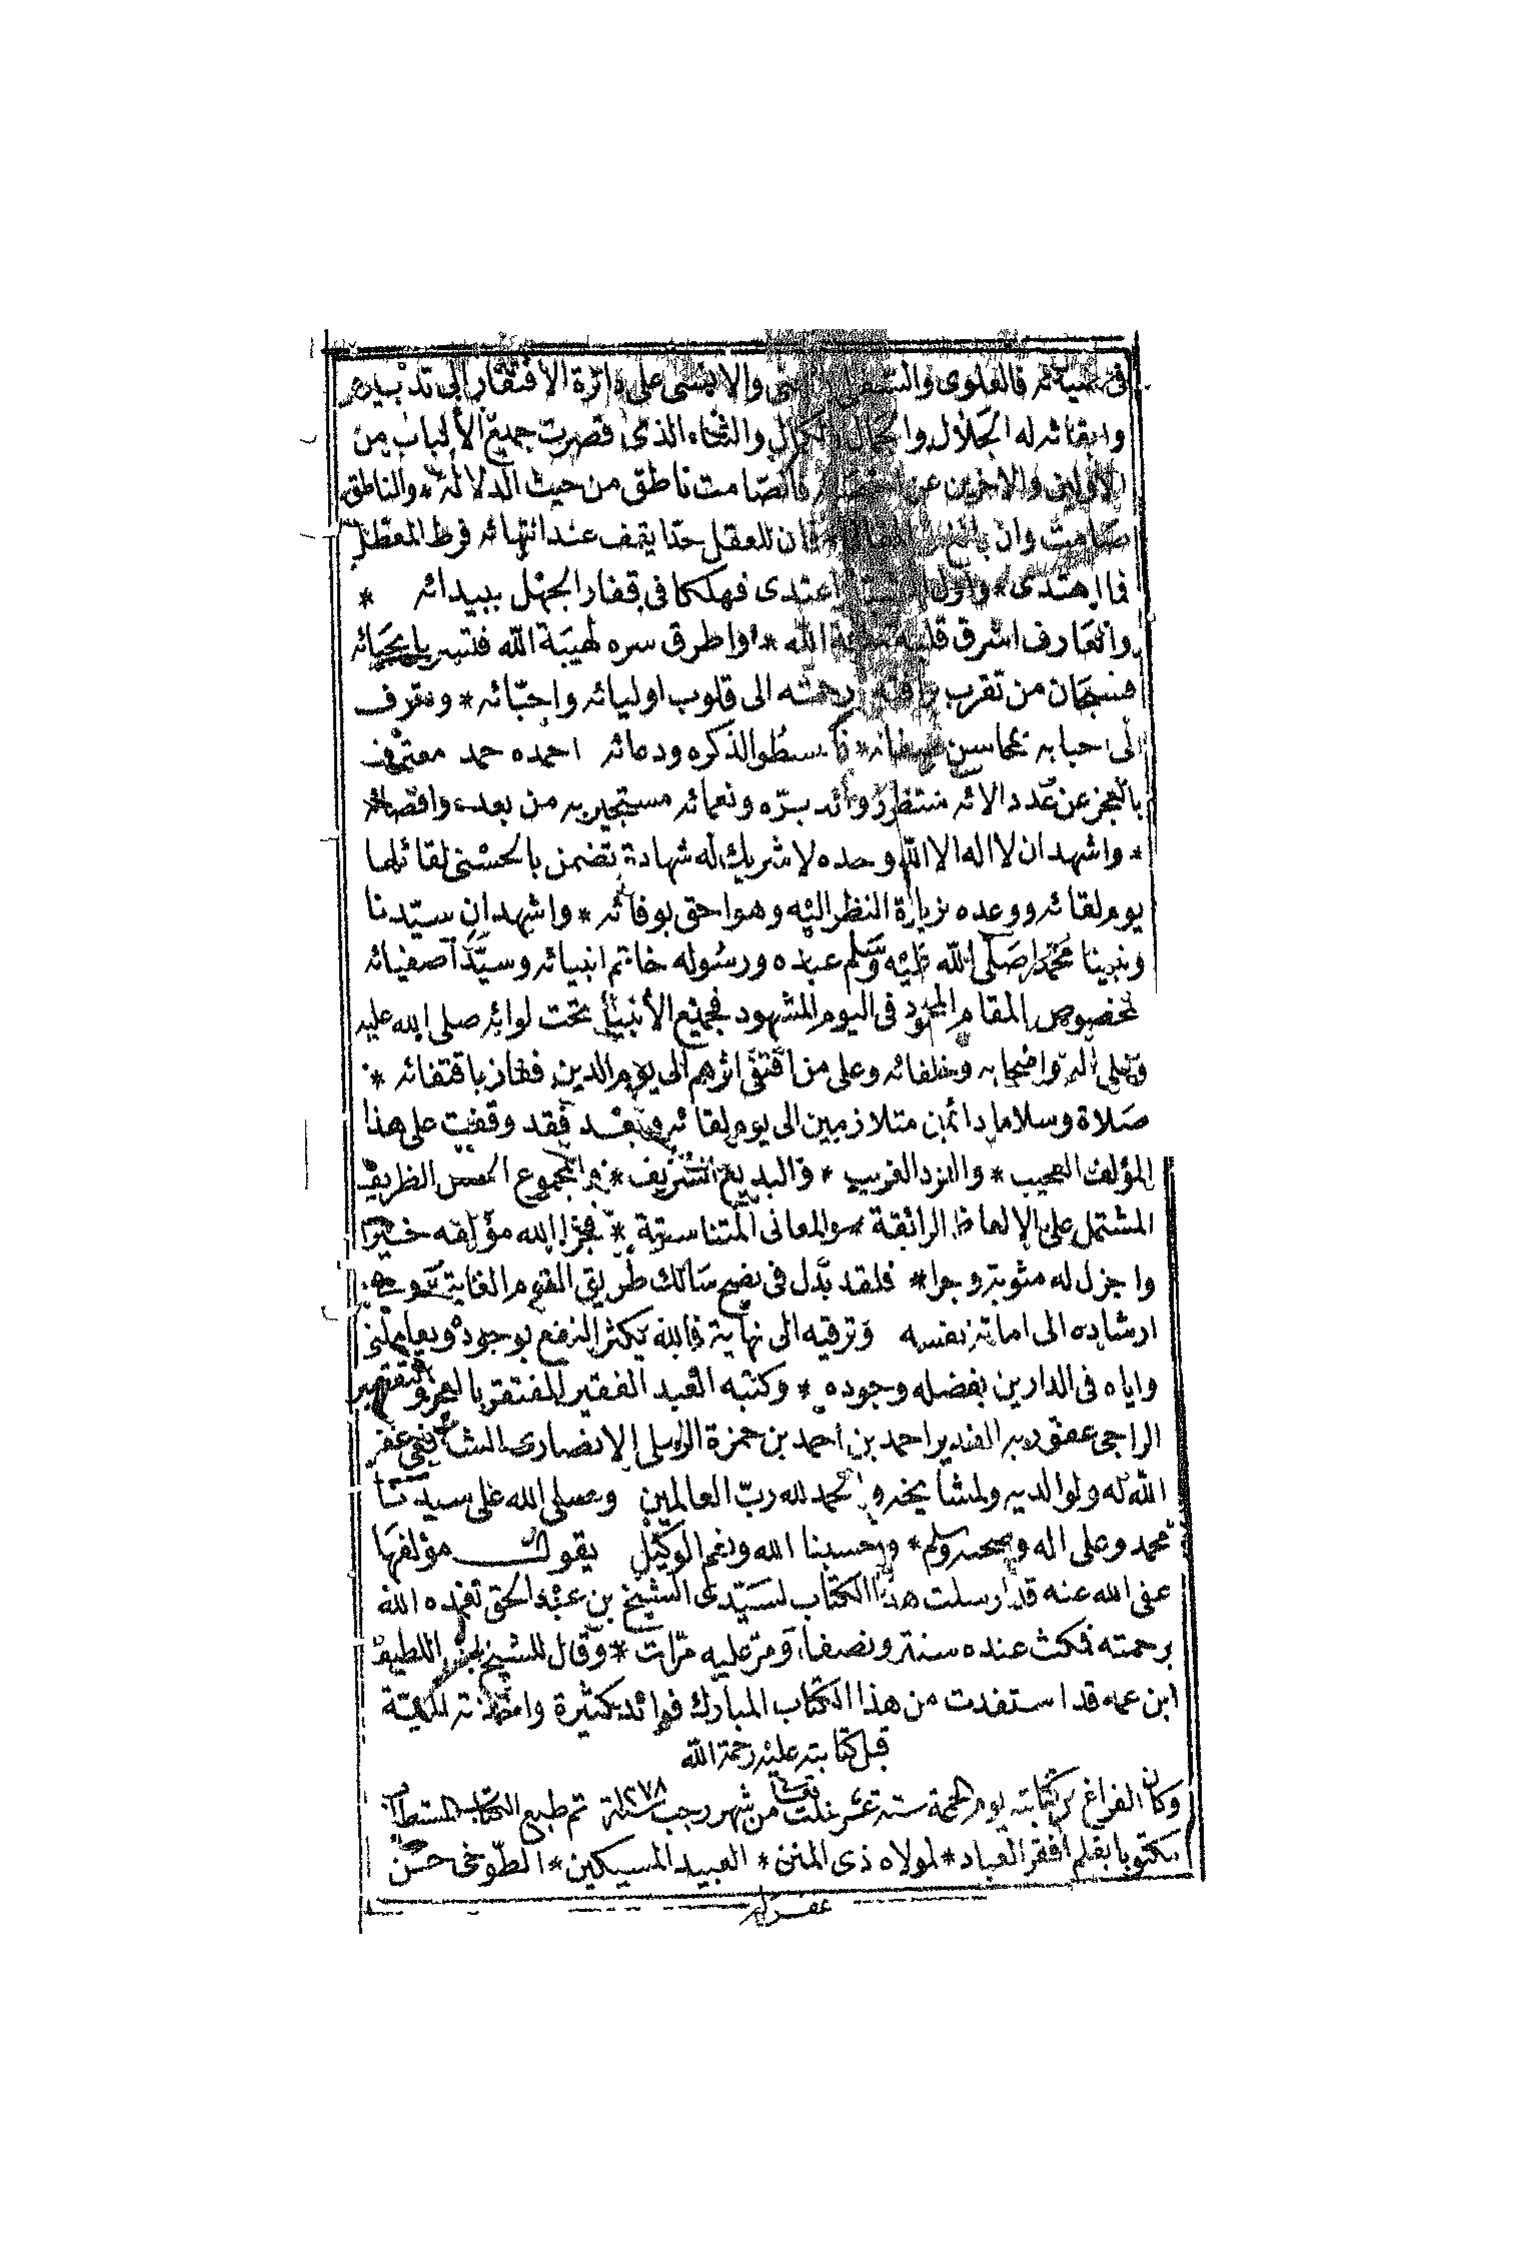 فالعلوى والسفلى والانسى على دائرة الافتقار الى تدبيره
وابقائه له الجلال والجمال والكمال والثناء الذى قصرت جميع الألباب من
الاولين والاخرين عن فالصامت ناطق من حيث الدلالة * والناطق
صامت وان بالغ فان للعقل حدا يقف عند انتهائه فرط المعطل
فما اهتدى * واول اعتدى فهلكا فى قفار الجهل ببيدائه *
والعارف اشرق قلبه الله * واطرق سره لهيبة الله فتسربل بحيائه
فسبحان من تقرب برأفته ورحمته الى قلوب اوليائه واحبائه * وتعرف
الى احبابه بمحاسن صفاته * لذكره ودعائه احمده حمد معترف
بالعجز عن عدد الائه منتظر زوائد بره ونعمائه مستجير به من بعده واقصائه
* واشهد ان لا اله الا الله وحده لا شريك له شهادة تضمن بالحسنى لقائلها
يوم لقائه ووعده بزيادة النظر اليه وهو احق بوفائه * واشهد ان سيدنا
ونبينا محمدا صلى الله عليه وسلم عبده ورسوله خاتم انبيائه وسيد اصفيائه
المقام المحمود فى اليوم المشهود فجميع الأنبيا تحت لوائه صلى الله عليه
وعلى اله واصحابه وخلفائه وعلى من اقتفى اثرهم الى يوم الدين ففاز باقتفائه *
صلاة وسلاما دائمين متلازمين الى يوم لقائه وبعد فقد وقفت على هذا
المؤلف العجيب * والفرد الغريب * والبديع الشريف * والمجموع الحسن الظريف
المشتمل على الالفاظ الرائقة * والمعانى المتناسقة * فجزا الله مؤلفه خيرا
واجزل له مثوبة واجرا * فلقد بذل فى نصح سالك طريق القوم الغاية
ارشاده الى اماتة نفسه وترقيه الى نهاية فالله يكثر النفع بوجوده ويعاملنى
واياه فى الدارين بفضله وجوده * وكتبه العبد الفقير المفتقر بالعجز والتقصير
الراجى عفو ربه القدير احمد بن احمد بن حمزة الرملى الانصارى الشافعى غفر
الله له ولوالديه ولمشايخه والحمد لله رب العالمين وصلى الله على سيدنا
محمد وعلى اله وصحبه وسلم * وحسبنا الله ونعم الوكيل يقول مؤلفها
عفى الله عنه قد ارسلت هذا الكتاب لسيدى الشيخ بن عبد الحق تغمده الله
برحمته فمكث عنده سنة ونصفا ومر عليه مرات * وقال للشيخ اللطيف
ابن عمه قد استفدت من هذا الكتاب المبارك فوائد كثيرة
قبل كتابته عليه رحمة الله
وكان الفراغ من كتابته يوم الجمعة ستة عشر خلت من شهر رجب سنة ١٢٧٨ تم طبع الكتاب المستطاب
مكتوبا بقلم افقر العباد * لمولاه ذى المنن * العبيد المسيكين * الطوخى حسن
غفر له